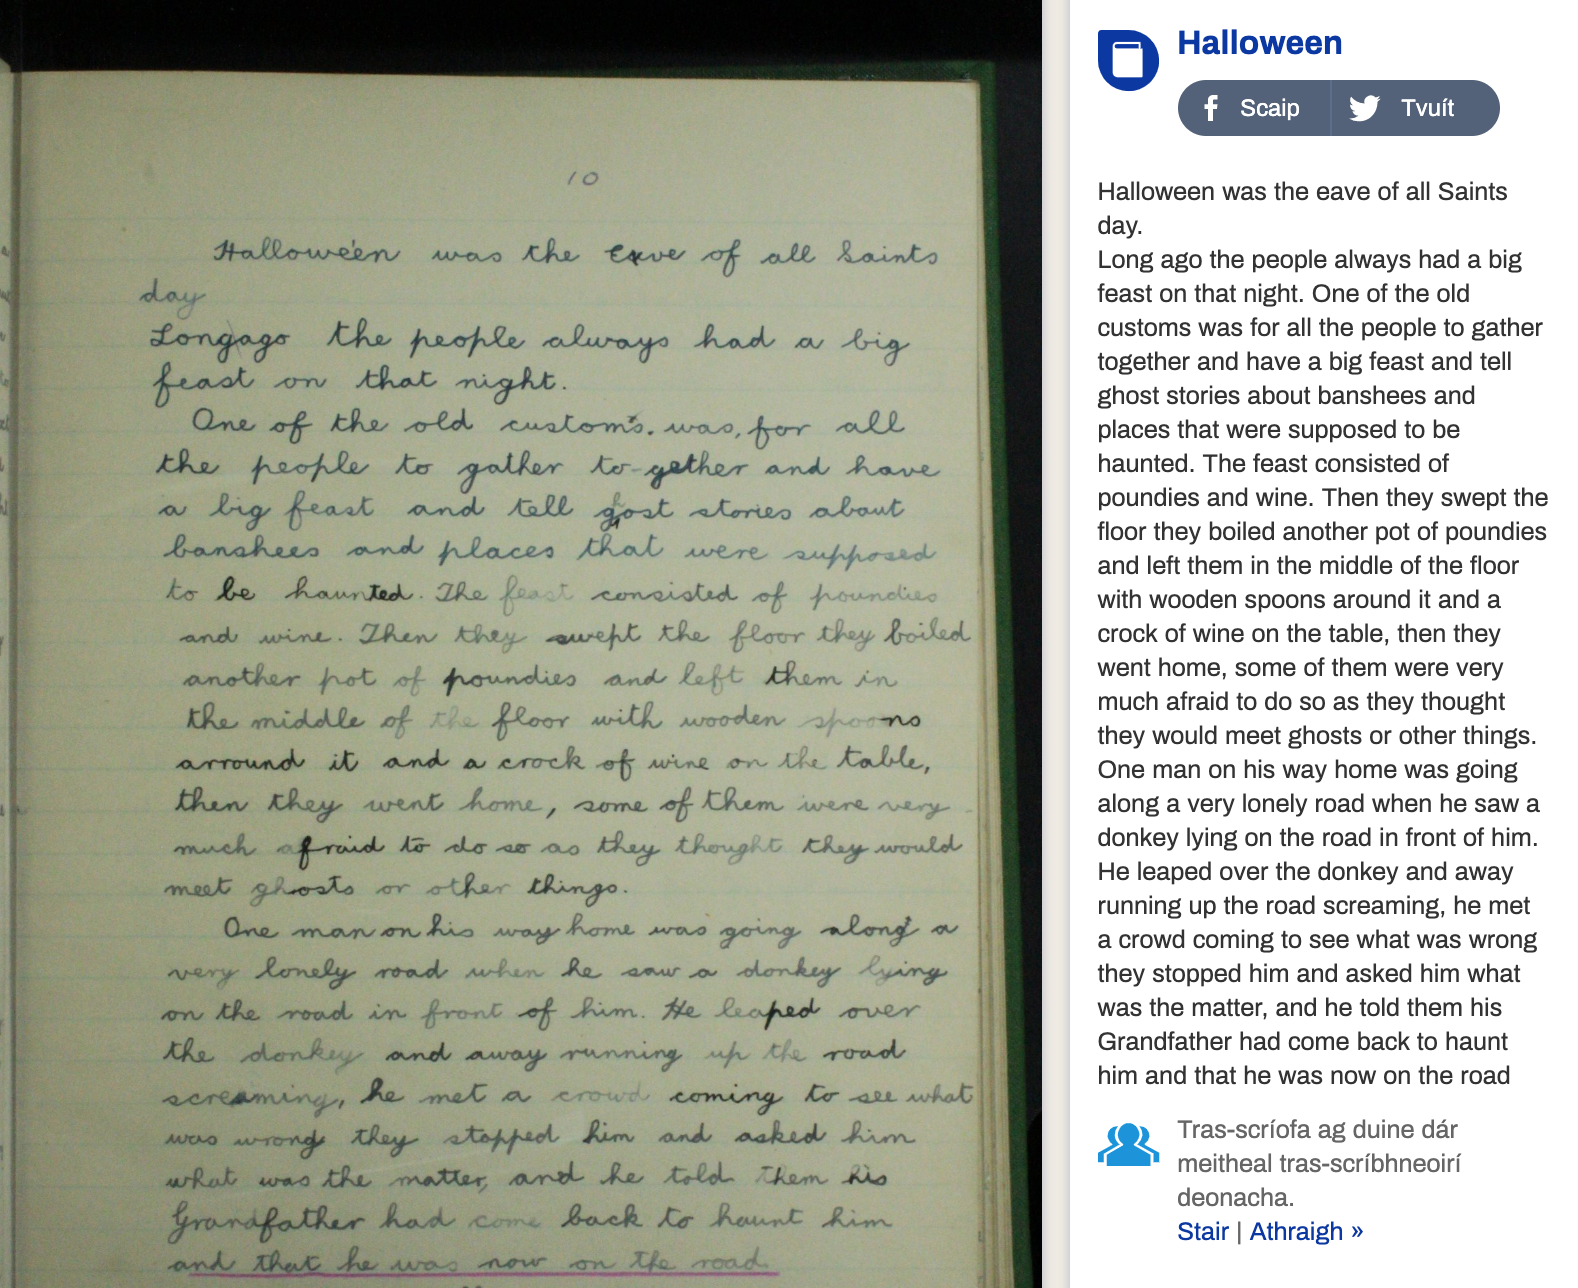 10
Halloween was the eave of all Saints
day
Longago the people always had a big
feast on that night.
One of the old custom's. was, for all
the people to gather to-gether and have
a big feast and tell ghost stories about
banshees and places that were supposed
to be haunted. The feast consisted of poundies
and wine. Then they swept the floor they boiled
another pot of poundies and left them in
the middle of the floor with wooden spoons
arround it and a crock of wine on the table,
then they went home, some of them were very
much afraid to do so as they thought they would
meet ghosts or other things.
One man on his way home was going along a
very lonely road when he saw a donkey lying
on the road in front of him. He leaped over
the donkey and away running up the road
screaming, he met a crowd coming to see what
was wrong they stopped him and asked him
what was the matter, and he told them his
Grandfather had come back to haunt him
and that he was now on the road.
Halloween
Scaip Tvuít
Halloween was the eave of all Saints
day.
Long ago the people always had a big
feast on that night. One of the old
customs was for all the people to gather
together and have a big feast and tell
ghost stories about banshees and
places that were supposed to be
haunted. The feast consisted of
poundies and wine. Then they swept the
floor they boiled another pot of poundies
and left them in the middle of the floor
with wooden spoons around it and a
crock of wine on the table, then they
went home, some of them were very
much afraid to do so as they thought
they would meet ghosts or other things.
One man on his way home was going
along a very lonely road when he saw a
donkey lying on the road in front of him.
He leaped over the donkey and away
running up the road screaming, he met
a crowd coming to see what was wrong
they stopped him and asked him what
was the matter, and he told them his
Grandfather had come back to haunt
him and that he was now on the road
Tras-scríofa ag duine dár
meitheal tras-scríbhneoirí
deonacha.
Stair | Athraigh »